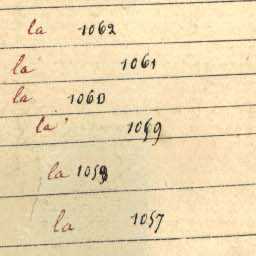 la 1062
la 1061
la 1060
la 1059
la 1058
la 1057